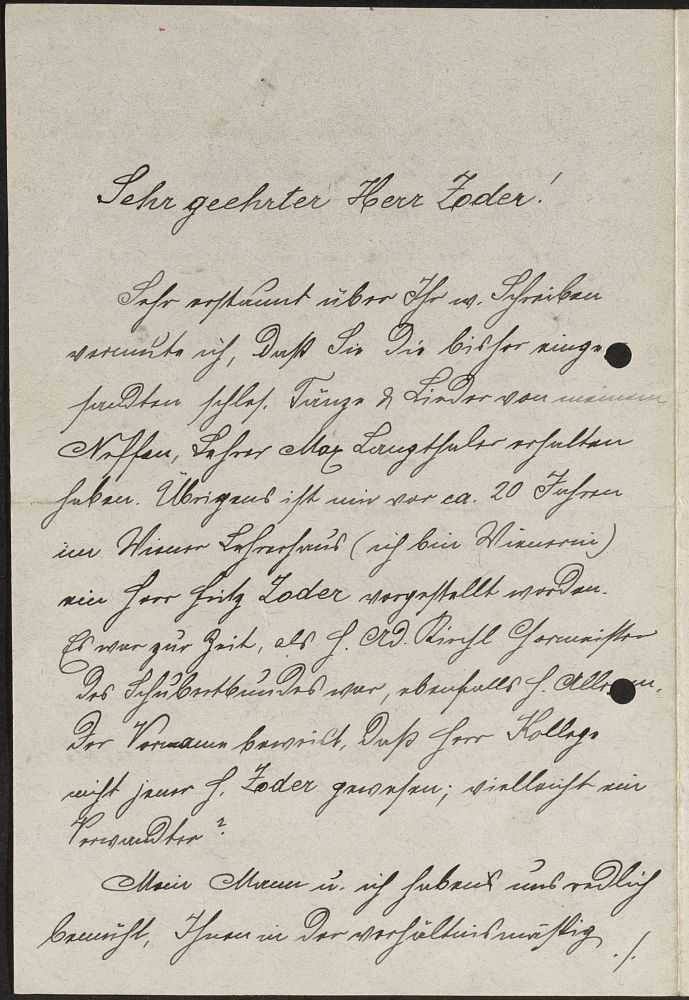 Sehr geehrter Herr Zoder!
Sehr erstaunt über Ihr w. Schreiben
vermute ich, daß Sie die bisher einge
sandten schles. Tänze & Lieder von meinem
Neffen, Lehrer Max Langthaler erhalten
haben. Übrigens ist mir vor ca. 20 Jahren
im Wiener Lehrerhaus (ich bin Wienerin)
ein Herr Fritz Zoder vorgestellt worden.
Es war zur Zeit, als H. Ad. Kirchl Chormeister
des Schubertbundes war, ebenfalls H.
Der Vorname beweist, daß Herr Kollege
nicht jener H. Zoder gewesen; vielleicht ein
Verwandter?
Mein Mann u. ich haben uns redlich
bemüht, Ihnen in der verhältnismäßig
./.